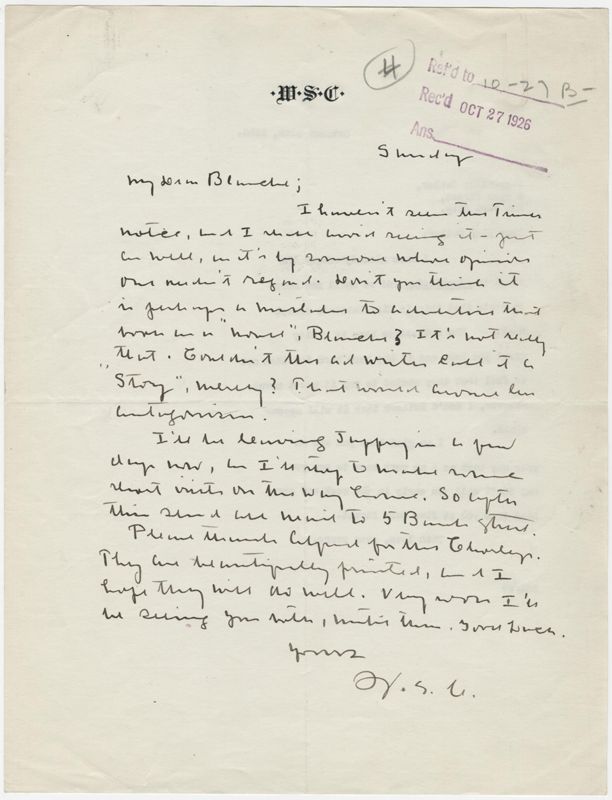 H
Ref'd to 10-27 B-
·W·S·C·
Rec'd OCT 27 1926
Ans.
Sunday
My dear Blanche;
I haven't seen the Times
notice, and I shall avoid seeing it - just
as well, as it's by someone whose opinion
one needn't regard. Don't you think it
is perhaps a mistake to advertise that
book as a "novel", Blanche? It's not really
that. Couldn't the ad writer call it a
"Story", merely? That would arouse less
antagonism.
I'll be leaving Jaffrey in a few
days now, as I'll stop to make some
short visits on the way home. So after
this send all mail to 5 Bank Street.
Please thank Alfred for the
They are beautifully printed, and I
hope they will do well. Very soon I'll
be seeing you both, until then. Good Luck.
Yours
W. S. C.